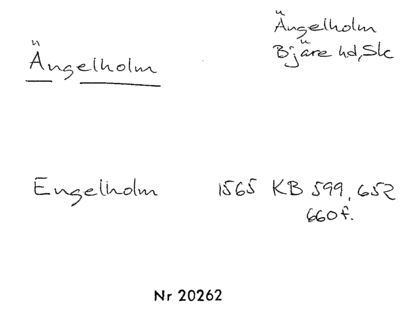 Ängelholm
Ängelholm
Bjäre hd, Sk
Engelholm 1565 KB 599, 652
660 f.
Nr 20262